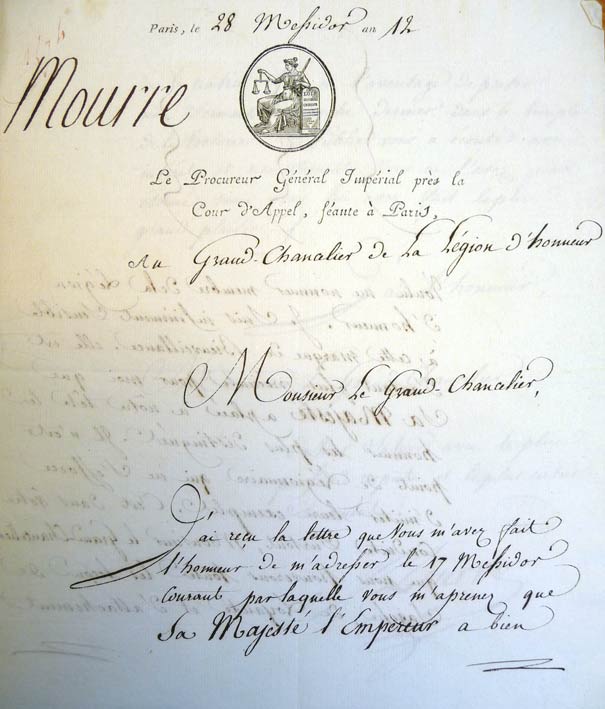 Paris, le 28 Messidor an 12
Mourre
Le Procureur Général Impérial près la
Cour d'Appel, séante à Paris,
Au Grand-Chancalier de La Légion d'honneur
Monsieur Le Grand-Chancelier,
J'ai reçu la lettre que Vous m'avez fait
l'honneur de m'adresser le 17 Messidor
courant par laquelle vous m'aprenez que
Sa Majesté l'Empereur a bien